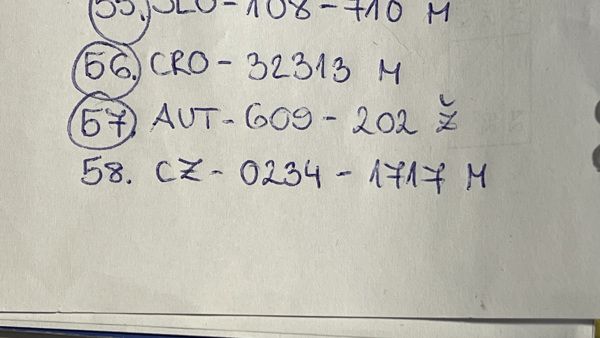 55. SLO - 108 - 710 M
56. CRO - 32313 M
57. AUT - 609 - 202 Ž
58. CZ - 0234 - 1717 M